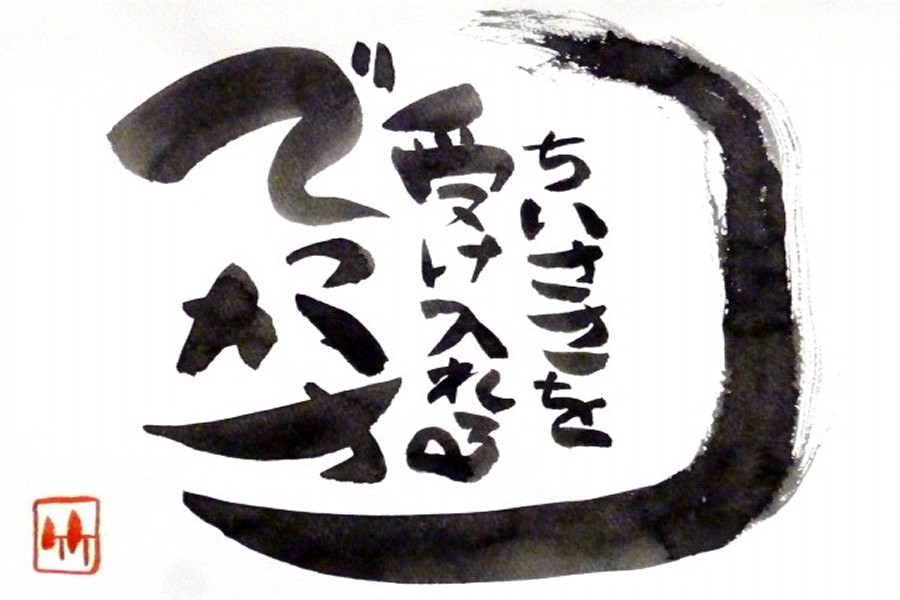 ちいささを
受け入れる
でっかさ
竹